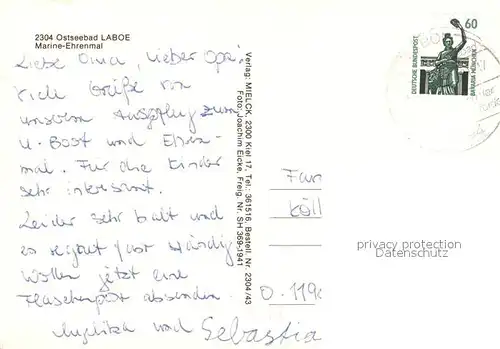 2304 Ostseebad LABOE
Marine-Ehrenmal
Liebe Oma, lieber Opa,
viele Grüße von
unserem Ausflug zum
U-Boot und Ehren-
mal. Für die Kinder
sehr interessant.
Leider sehr kalt und
es regnet fast ständig
Wollen jetzt eine
Flaschenpost absenden.
Angelika und Sebastia
Verlag: MIELCK, 2300 Kiel 17, Tel.: 361516, Bestell. Nr. 2304/43
Foto: Joachim Eicke, Freig. Nr. SH 369-1941
60
DEUTSCHE BUNDESPOST
BAVARIA MÜNCHEN
Fam
Köll
O-119
privacy protection
Datenschutz